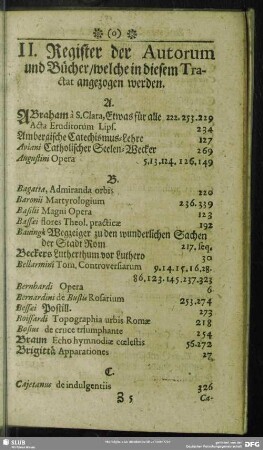 (o)
II. Register der Autorum
und Bücher/welche in diesem Tra-
ctat angezogen werden.
A.
Abraham à S. Clara, Etwas für alle 222. 253. 219
Acta Eruditorum Lips. 234
Ambergische Catechismus-Lehre 127
Aviani Catholischer Seelen-Wecker 269
Augustini Opera 5,13,124,126,149
B.
Bagatta, Admiranda orbis 220
Baronii Martyrologium 236.339
Basilii Magni Opera 123
Bassæi flores Theol. practicæ 192
Bauingk Wegzeiger zu den wunderlichen Sachen
der Stadt Rom 217. seq.
Beckers Lutherthum vor Luthero 30
Bellarmini Tom. Controversiarum 9.14.15.16.18.
86,123.145.237.323
Bernhardi Opera 6
Bernardini de Bustis Rosarium 253.274
Bessei Postill. 273
Boissardi Topographia orbis Romæ 218
Bosius de cruce triumphante 254
Braun Echo hymnodiæ cœlestis 56.272
Brigittä Apparationes 27
C.
Cajetanus de indulgentiis 326
Z 5 Ca-
SLUB